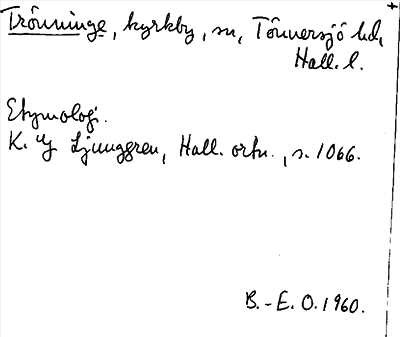 Trönninge, kyrkby, sn, Tönnersjö hd,
Hall. l.
Etymologi.
K. G. Ljunggren, Hall. ortn., s. 1066.
B.-E. O. 1960.